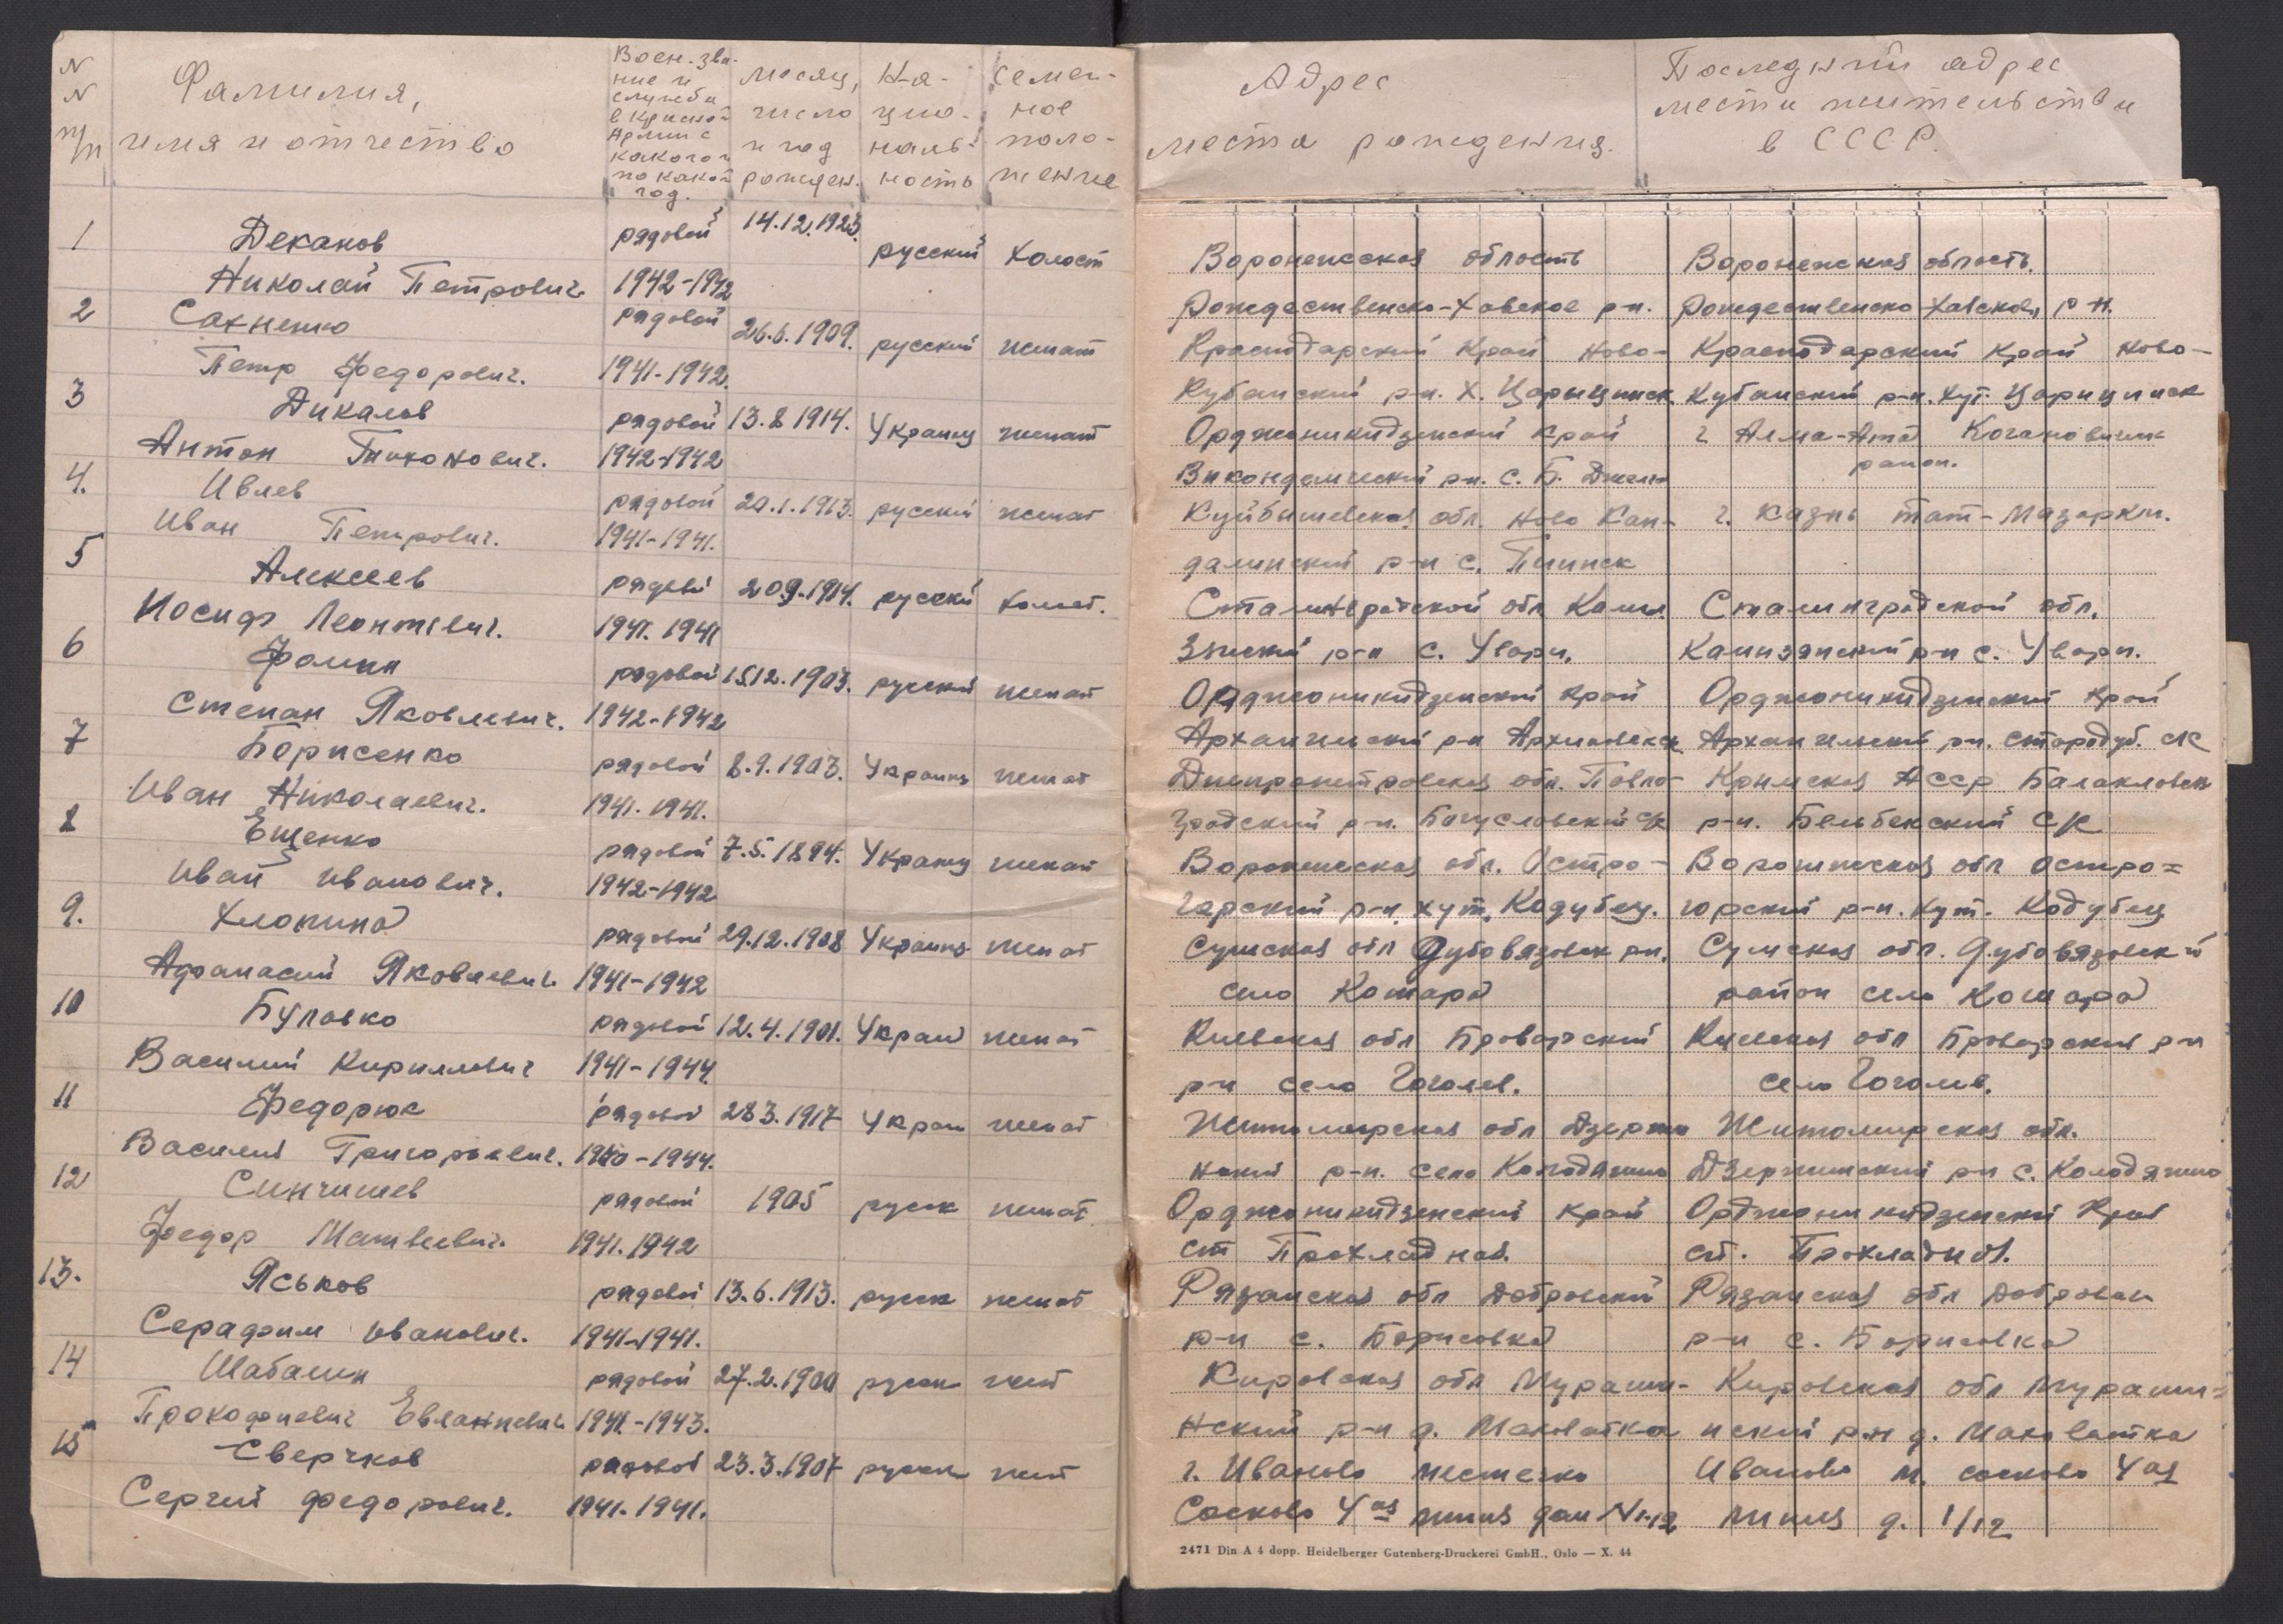 N
N
п/п
Фамилия,
имя и отчество
Воен. зва-
ние и
служба
в Красной
Армии с
какого и
по какой
год.
месяц,
число
и год
рожден.
Н-а-
цио-
наль-
ность
семей-
ное
поло-
жение
Адрес
места рождения.
Последний адрес
места жительства
в СССР.
1 Деканов рядовой 14.12.1923. русский холост
Николай Петрович 1942-1942
2 Сахненко рядовой 26.6.1909. русский женат
Петр Федорович. 1941-1942.
3 Дикалов рядовой 13.8 1914. Украинц женат
Антон Тихонович. 1942-1942
4. Ивлев рядовой 20.1.1913. русский женат
Иван Петрович. 1941-1941.
5 Алексеев рядовй 20.9.1914. русский холост.
Иосиф Леонтевич. 1941. 1941
6 Фомин рядовой 15.12.1903. русский женат
Степан Яковлевич. 1942-1942
7 Борисенко рядовой 8.9.1903. Украинц женат
Иван Николаевич. 1941. 1941.
8 Ещенко рядовой 7.5.1894. Украинц женат
Иван Иванович. 1942-1942
9. Хлопина рядовой 29.12.1908 Украинц женат
Афанасий Яковлевич. 1941-1942
10 Булавко рядовой 12.4.1901. Украи женат
Василий Кириллович 1941-1944.
11 Федорюк рядовой 28 3.1917 Украи женат
Василий Григорьевич. 1940-1944.
12 Синчишев рядовой 1905 русск женат
Федор Матвеевич. 1941. 1942
13. Яськов рядовой 13.6.1913. русск женат
Серафим Иванович. 1941-1941.
14 Шабалин рядовой 27.2.1900 русск жент
Прокофиевич Евлампиевич 1941-1943.
15 Сверчков рядовой 23.3.1907 русск жент
Сергей Федорович. 1941. 1941.
Воронежская область Воронежская область.
Рождественско-Хавское рн. Рождественско Хавское, р-н.
Краснодарский край Ново- Краснодарский край Ново-
Кубанский р-н. Х. Царыцинск Кубанский р-н. хут. Царицинск
Орджоникидзенский край г Алма-Ата Когановичск
район.
р-н. С. Б.
Куйбишевская обл. Ново Кан- г. Казнь тат-
далинский р-н с.
Сталинградской обл. Сталинградской обл.
р-н с. Увари. р-н с. Увари.
Орджоникидзенский край Орджоникидзенский край
Архангельский р-н Архангельский рн. стародуб. с/с
Днепропетровская обл. Павло- Крымская АССР Балакловск
градский р-н. Богуславский с/с р-н. Бельбекский с/с
Воронежская обл. Остро- Воронежская обл Остро=
гарский р-н, хут. Кодубец. горский р-н. хут. Кодубец
Сумская обл Дубовязовск рн. Сумская обл. Дубовязовск-й
село Кошара район село Кошара
Киевская обл Броварский Киевская обл Броварский р-н
р-н село Гоголев. село Гоголев.
Житомирская обл Дзержи Житомирская обл.
нский р-н. село Колодяжно Дзержинский р-н с. Колодяжно
Орджоникидзенский край Орджоникидзенский край
ст Прохладная. ст. Прохладная.
Рязанская обл Добровский Рязанская обл Добровск
р-н с. Борисовка р-н с. Борисовка
Кировская обл Мураши- Кировская обл Мураши=
нский р-н д. Маковатка нский р-н д. Маковатка
г. Иваново местечко Иваново м. сосново 4ая
Соснево 4ая линия дом №12 линия д. 1/12
2471 Din A 4 dopp. Heidelberger Gutenberg-Druckerei GmbH., Oslo — X. 44